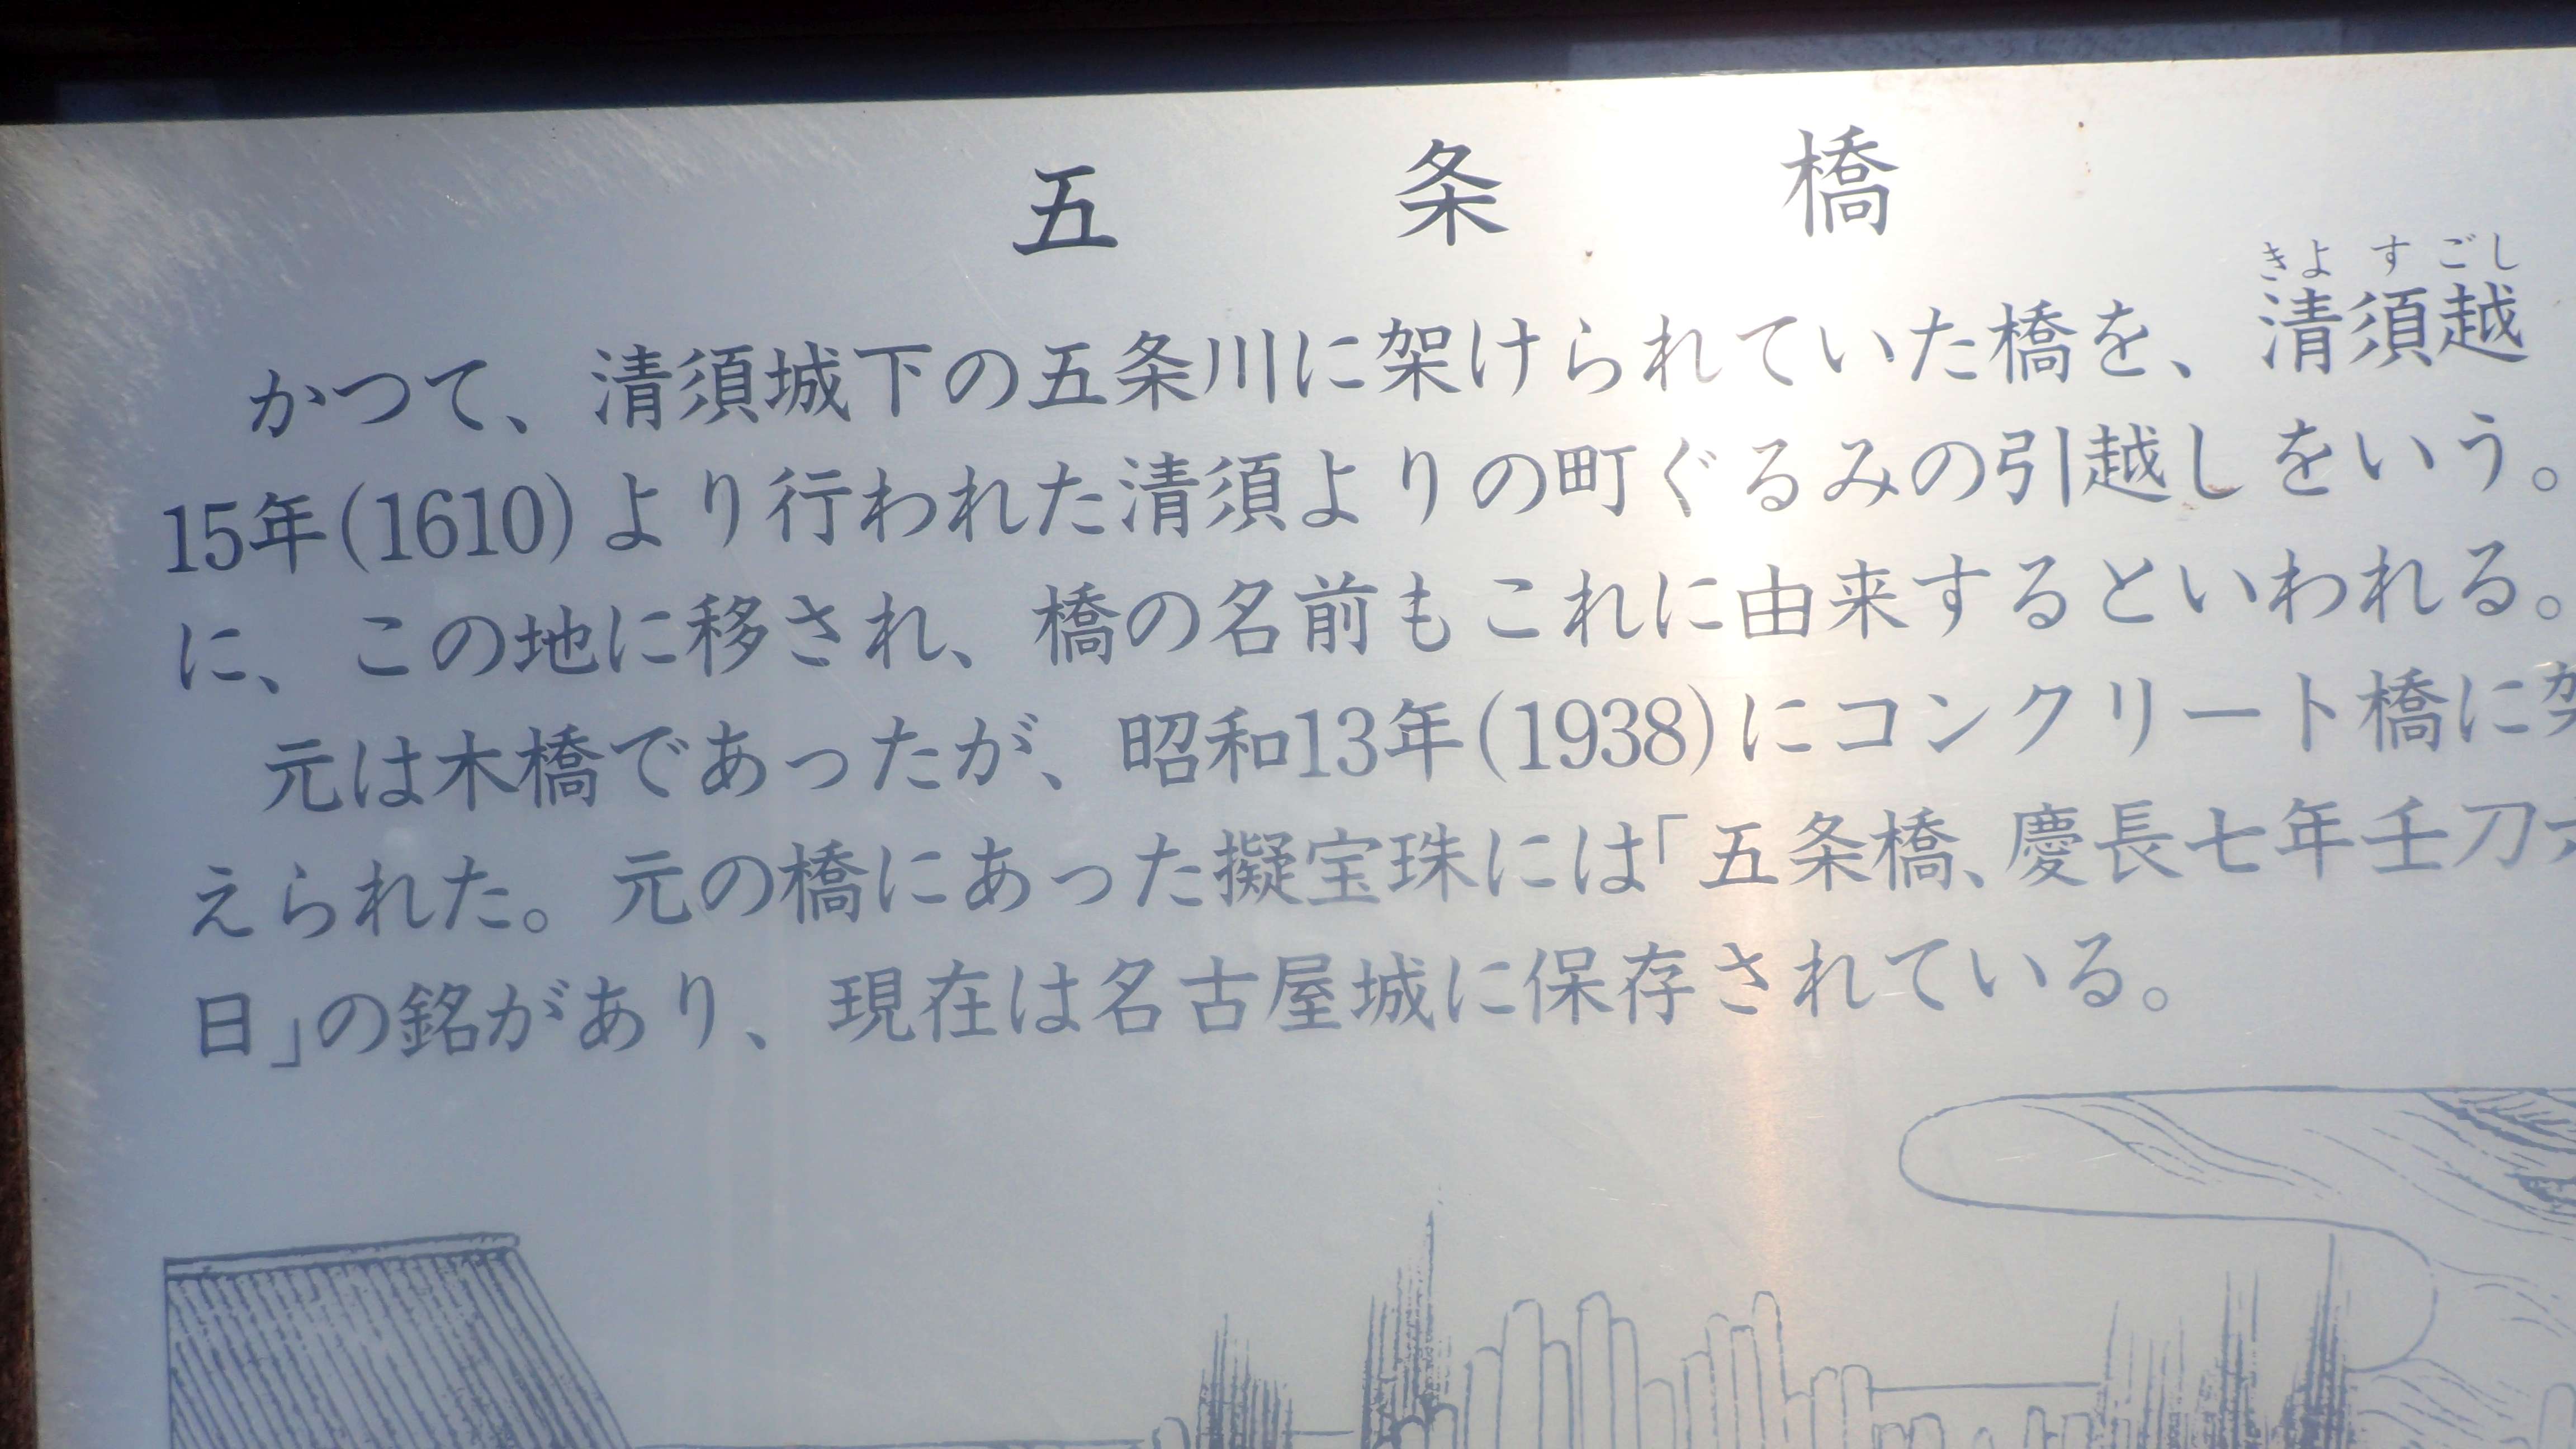 五条橋
きよすごし
かつて、清須城下の五条川に架けられていた橋を、清須越
15年(1610)より行われた清須よりの町ぐるみの引越しをいう。
に、この地に移され、橋の名前もこれに由来するといわれる。
元は木橋であったが、昭和13年(1938)にコンクリート橋に架
えられた。元の橋にあった擬宝珠には「五条橋、慶長七年壬刀六
日」の銘があり、現在は名古屋城に保存されている。